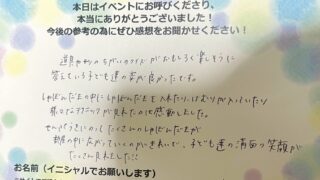 本日はイベントにお呼びくださり、
本当にありがとうございました！
今後の参考の為にぜひ感想をお聞かせください！
道具やわりばしのクイズがおもしろく楽しそうに
答えている子ども達の姿が良かったです。
しゃぼん玉の中にしゃぼん玉を入れたり、けむりが入っていたり
様々なテクニックが見れたのも感動しました。
せんぷうきでのたくさんのしゃぼん玉が
部屋の中に広がっていくのがきれいで、子ども達の満面の笑顔が
たくさん見れました!!
お名前（イニシャルでお願いします）